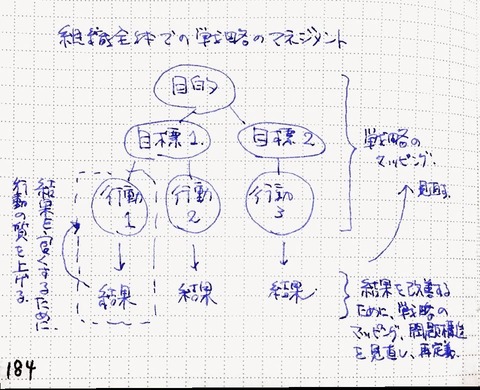 組織全体での戦略のマネジメント
目的
目標1.
目標2
行動
1
行動
2
行動
3
結果
結果
結果
戦略の
マッピング.
見直す.
結果を改善する
ために、戦略の
マッピング、問題構造
を見直し、再定義.
結果を良くするために、
行動の質を上げる。
184